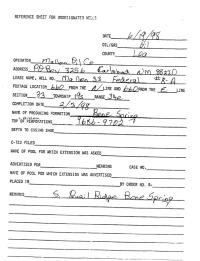 REFERENCE SHEET FOR UNDESIGNATED WELLS
DATE 6/9/98
OIL/GAS Oil
COUNTY Lea
OPERATOR Matador
ADDRESS PO Box 3256 Carlsbad NM 88220
LEASE NAME, WELL NO. 33 Federal
FOOTAGE LOCATION 660 FROM THE N LINE AND 660 FROM THE E LINE
SECTION 33 TOWNSHIP 19S RANGE 34e
COMPLETION DATE 2/3/98
NAME OF PRODUCING FORMATION Bone Spring
TOP OF PERFORATIONS 9686-9702
DEPTH TO CASING SHOE
C-123 FILED
NAME OF POOL FOR WHICH EXTENSION WAS ASKED
ADVERTISED FOR HEARING CASE NO.
NAME OF POOL FOR WHICH EXTENSION WAS ADVERTISED
PLACED IN BY ORDER NO. R-
REMARKS S. Quail Ridge Bone Spring